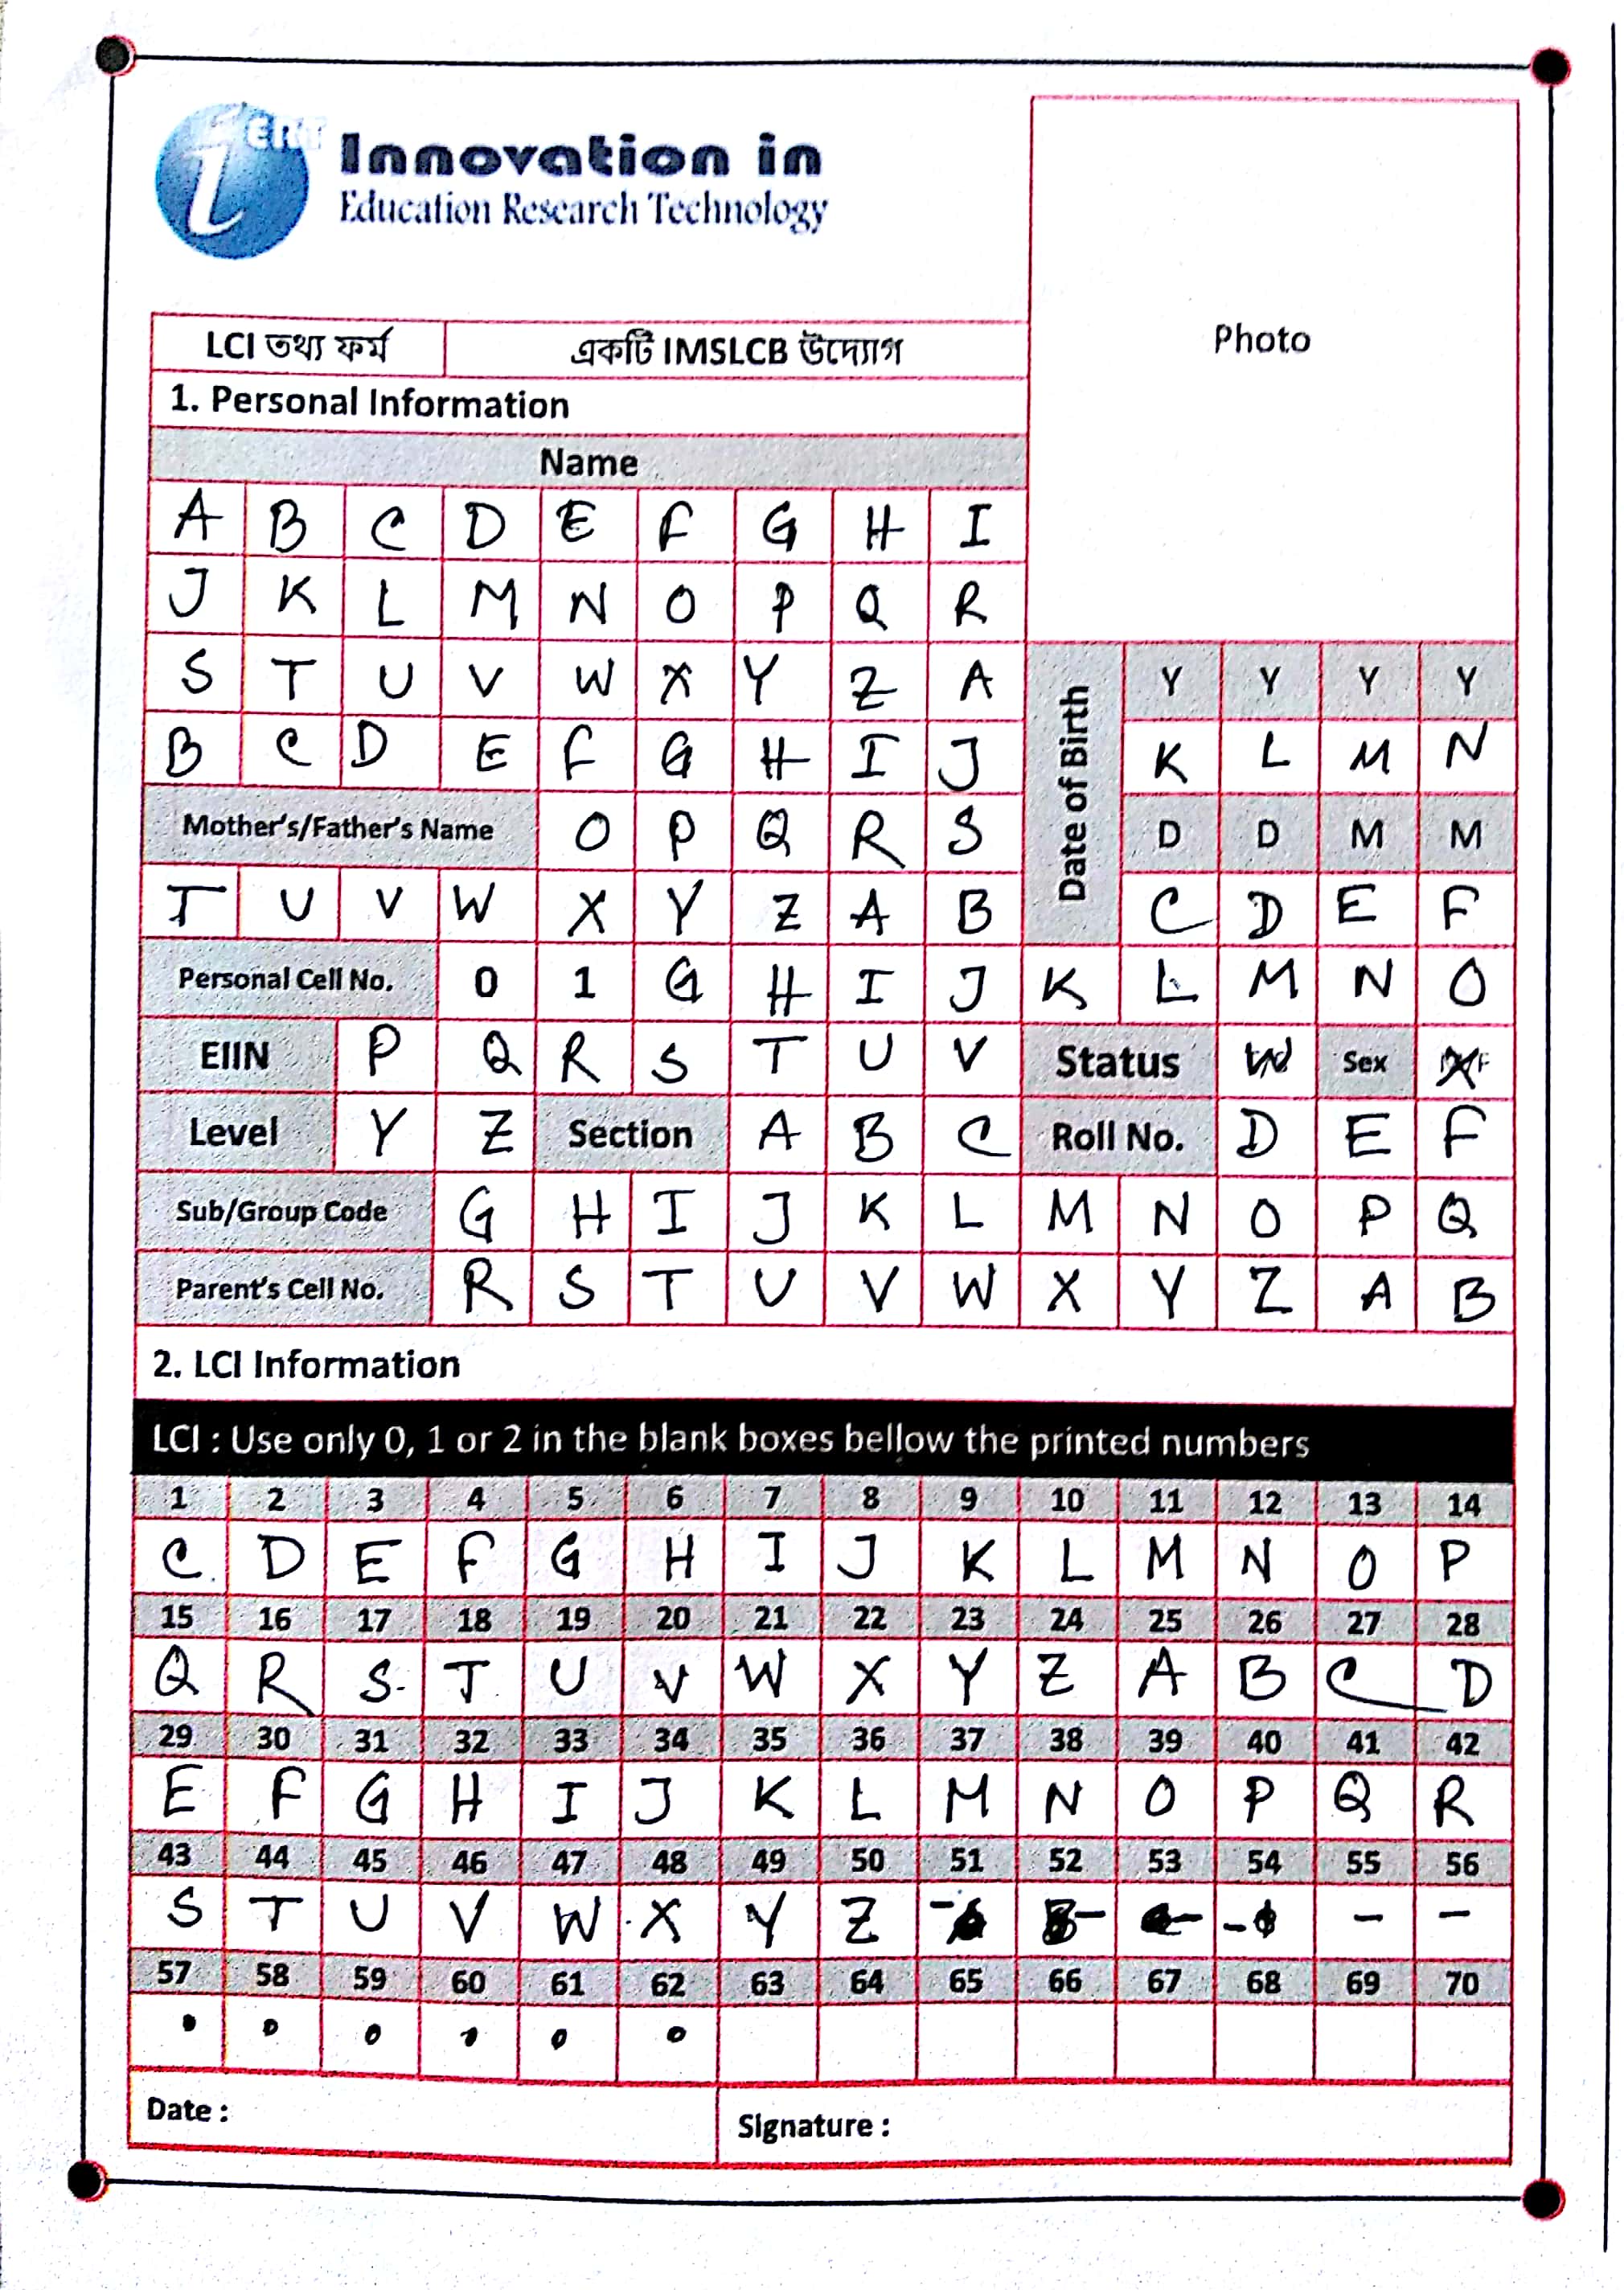 iERT
Innovation in
Education Research Technology
Photo
LCI তথ্য ফর্ম একটি IMSLCB উদ্যোগ
1. Personal Information
Name
A B C D E F G H I
J K L M N O P Q R
S T U V W X Y Z A
Date of Birth Y Y Y Y
B C D E F G H I J K L M N
Mother's/Father's Name O P Q R S D D M M
T U V W X Y Z A B C D E F
Personal Cell No. 0 1 G H I J K L M N O
EIIN P Q R S T U V Status W Sex X
Level Y Z Section A B C Roll No. D E F
Sub/Group Code G H I J K L M N O P Q
Parent's Cell No. R S T U V W X Y Z A B
2. LCI Information
LCI : Use only 0, 1 or 2 in the blank boxes bellow the printed numbers
1 2 3 4 5 6 7 8 9 10 11 12 13 14
C D E F G H I J K L M N O P
15 16 17 18 19 20 21 22 23 24 25 26 27 28
Q R S T U V W X Y Z A B C D
29 30 31 32 33 34 35 36 37 38 39 40 41 42
E F G H I J K L M N O P Q R
43 44 45 46 47 48 49 50 51 52 53 54 55 56
S T U V W X Y Z - - - - - -
57 58 59 60 61 62 63 64 65 66 67 68 69 70
Date :
Signature :